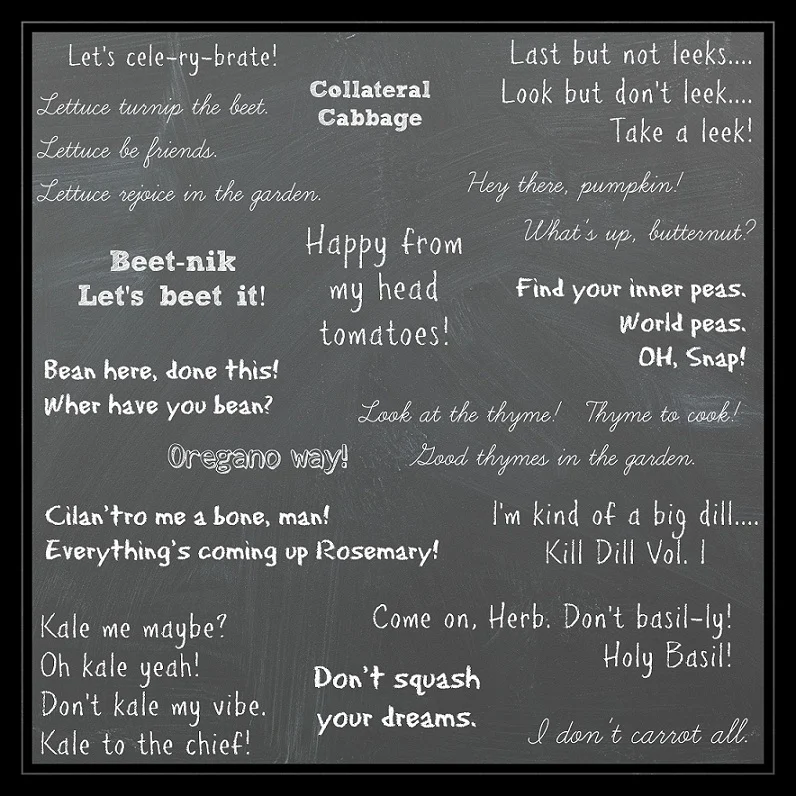 Let's cele-ry-brate!
Lettuce turnip the beet.
Lettuce be friends.
Lettuce rejoice in the garden.
Collateral
Cabbage
Last but not leeks....
Look but don't leek....
Take a leek!
Hey there, pumpkin!
What's up, butternut?
Beet-nik
Let's beet it!
Happy from
my head
tomatoes!
Find your inner peas.
World peas.
OH, Snap!
Bean here, done this!
Wher have you bean?
Look at the thyme! Thyme to cook!
Good thymes in the garden.
Oregano way!
Cilan'tro me a bone, man!
Everything's coming up Rosemary!
I'm kind of a big dill....
Kill Dill Vol. 1
Come on, Herb. Don't basil-ly!
Holy Basil!
Kale me maybe?
Oh kale yeah!
Don't kale my vibe.
Kale to the chief!
Don't squash
your dreams.
I don't carrot all.